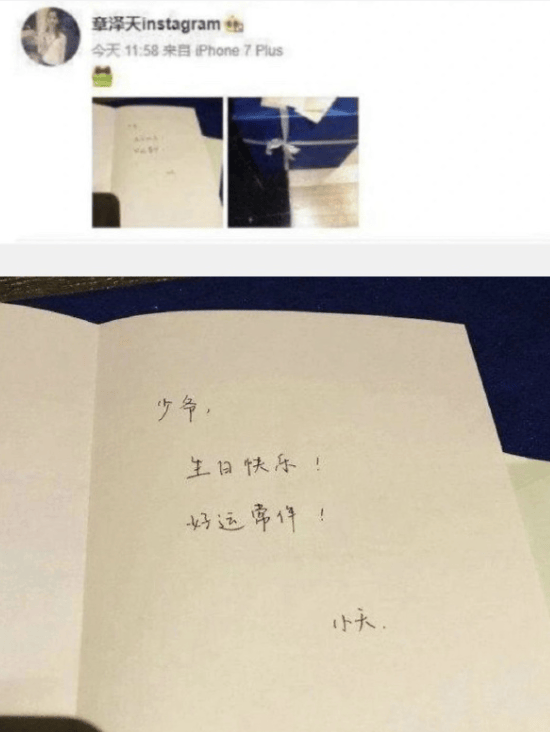 章泽天instagram
今天 11:58 来自 iPhone 7 Plus
少爷，
生日快乐！
好运常伴！
小天.